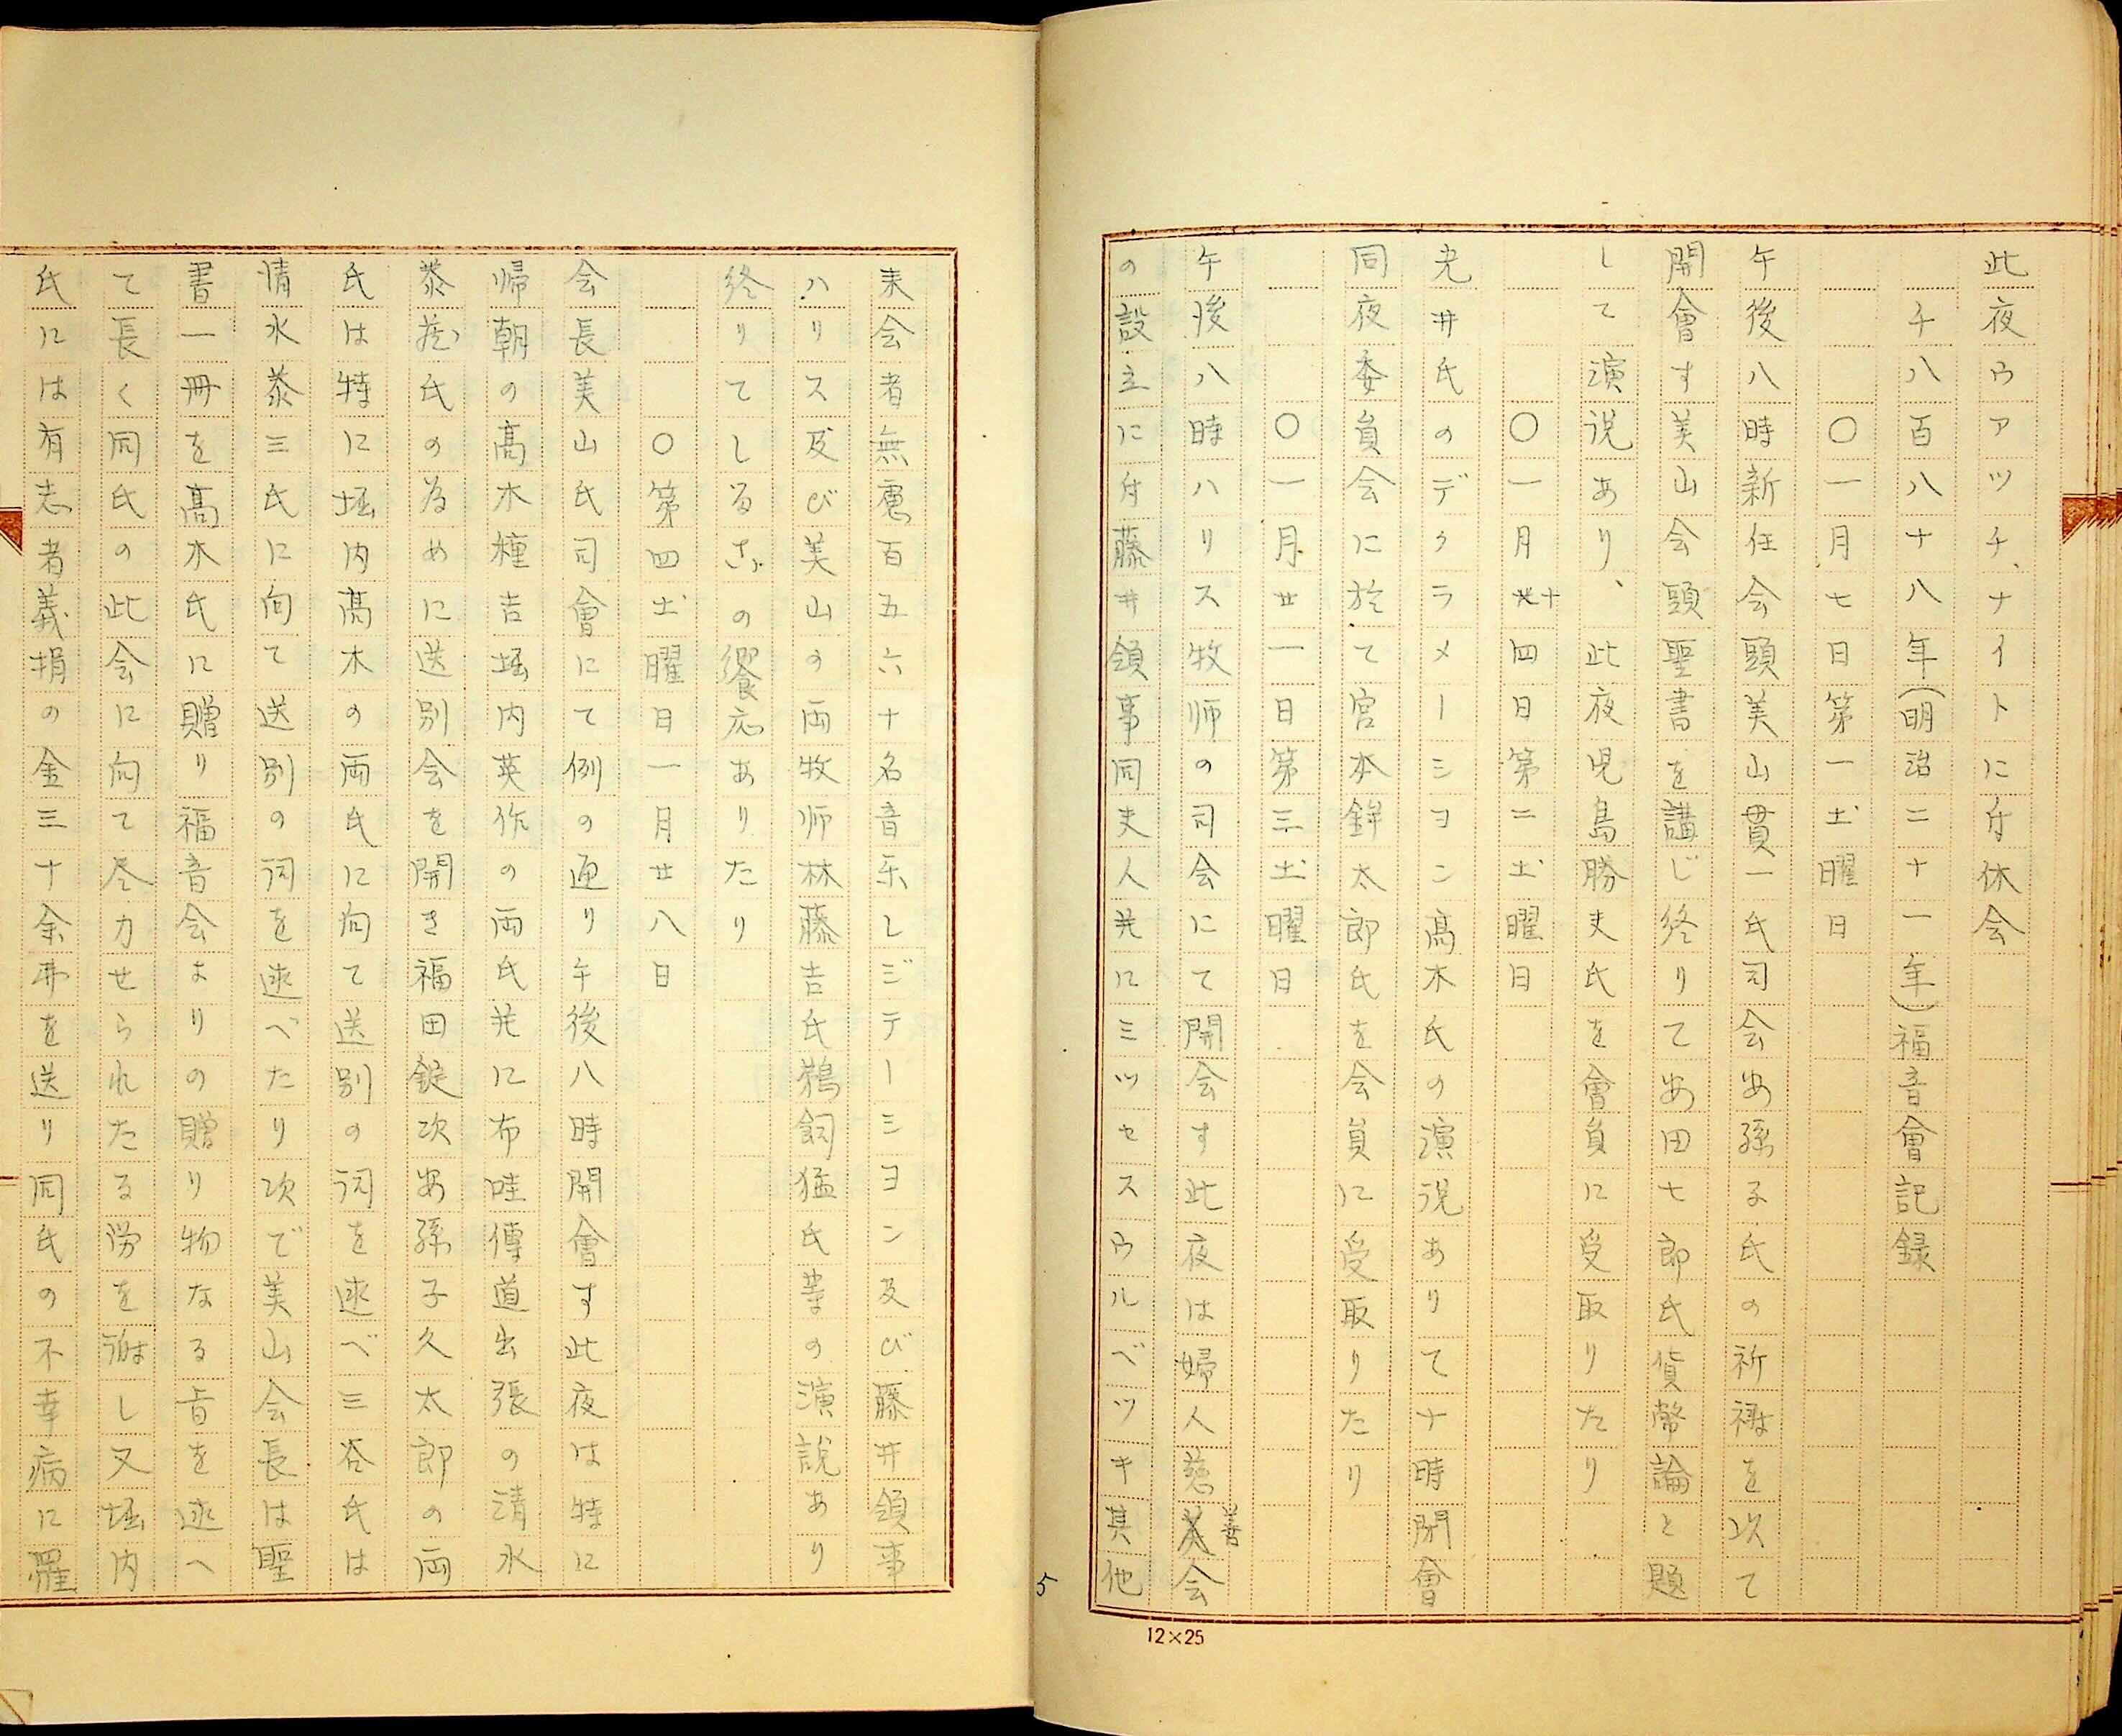 此夜ウアツチ、ナイトに付休会
千八百八十八年(明治二十一年)福音會記録
〇一月七日第一土曜日
午後八時新任会頭美山貫一氏司会安孫子氏の祈祷を以て
開會す美山会頭聖書を講じ終りて安田七郎氏貨幣論と題
して演説あり、此夜児島勝丈氏を會員に受取りたり
〇一月十四日第二土曜日
光井氏のデクラメーシヨン高木氏の演説ありて十時閉會
同夜委員会に於て宮本鉾太郎氏を会員に受取りたり
〇一月廿一日第三土曜日
午後八時ハリス牧师の司会にて開会す此夜は婦人慈善会
の設立に付藤井領事同夫人并にミツセスウルベツキ其他
5
12×25
来会者無慮百五六十名音乐レジデーミヨン及び藤井領事
ハリス及び美山の両牧师林藤吉氏鵜飼猛氏等の演説あり
終りてしるこの饗応ありたり
〇第四土曜日一月廿八日
会長美山氏司會にて例の通り午後八時開會す此夜は特に
帰朝の高木種吉堀内英作の両氏并に布哇傳道出張の清水
泰 氏の為めに送別会を開き福田錠次安孫子久太郎の両
氏は特に堀内高木の両氏に向て送別の詞を述べ三谷氏は
清水泰三氏に向て送別の詞を述べたり次で美山会長は聖
書一冊を高木氏に贈り福音会よりの贈り物なる旨を述へ
て長く同氏の此会に向て尽力せられたる労を謝し又堀内
氏には有志者義捐の金三十余弗を送り同氏の不幸病に罹